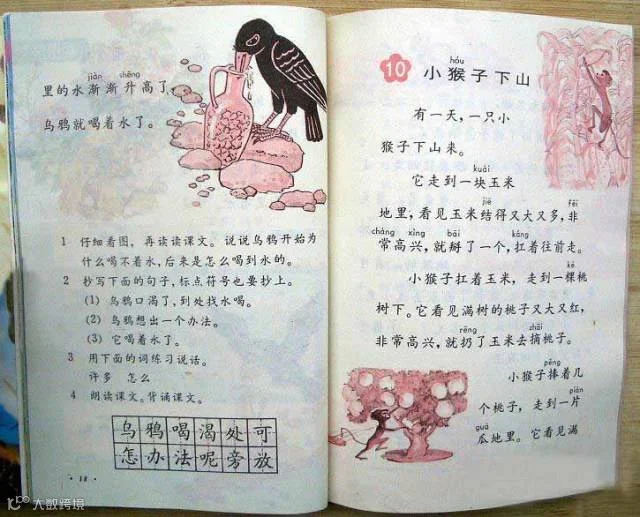 jiàn shēng
里的水渐渐升高了，
乌鸦就喝着水了。
1 仔细看图，再读读课文。说说乌鸦开始为
什么喝不着水，后来是怎么喝到水的。
2 抄写下面的句子，标点符号也要抄上。
(1) 乌鸦口渴了，到处找水喝。
(2) 乌鸦想出一个办法。
(3) 它喝着水了。
3 用下面的词练习说话。
许多 怎么
4 朗读课文。背诵课文。
乌鸦喝渴处可
怎办法呢旁放
·18·
hóu
10 小猴子下山
有一天，一只小
猴子下山来。
kuài
它走到一块玉米
jiē fēi
地里，看见玉米结得又大又多，非
cháng xìng bāi káng
常高兴，就掰了一个，扛着往前走。
kē
小猴子扛着玉米，走到一棵桃
树下。它看见满树的桃子又大又红，
rēng zhāi
非常高兴，就扔了玉米去摘桃子。
pěng
小猴子捧着几
piàn
个桃子，走到一片
guā
瓜地里。它看见满
大数跨境